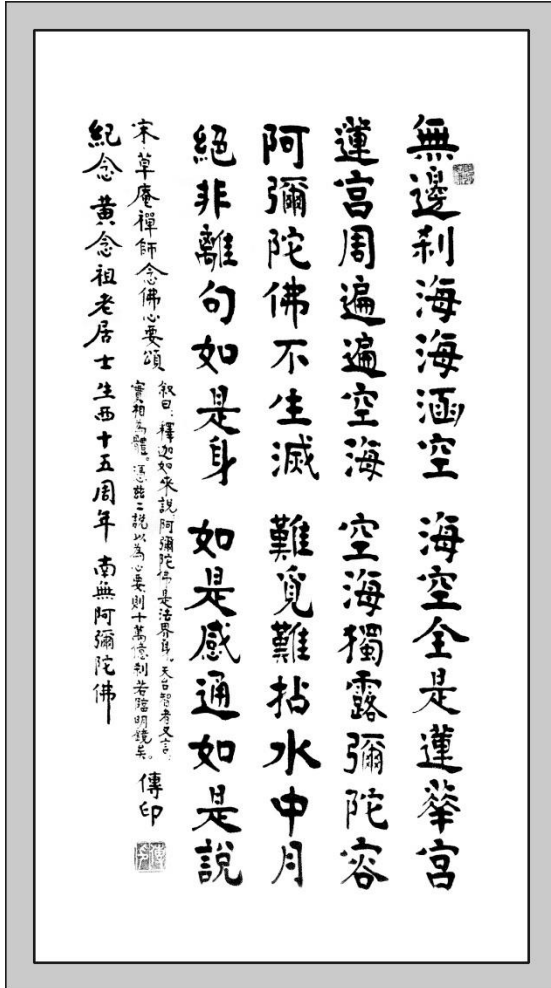 無邊刹海海涵空 海空全是蓮華宮
蓮宮周遍遍空海 空海獨露彌陀容
阿彌陀佛不生滅 難覓難拈水中月
絕非離句如是身 如是感通如是說
宋·草庵禪師念佛心要頌
叙曰：釋迦如來說，阿彌陀佛是法界身，天台智者又言，
實相為體。憑茲二說以為心要，則十萬億刹若臨明鏡矣。
傳印
紀念 黃念祖老居士生西十五周年 南無阿彌陀佛